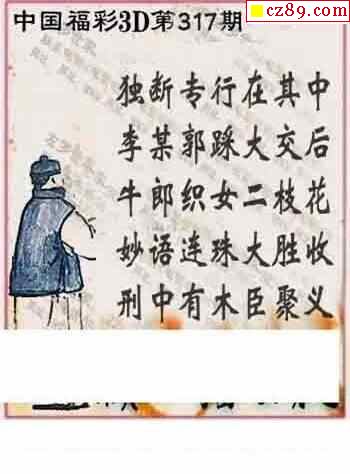 cz89.com
中国福彩3D第317期
独断专行在其中
李某郭踩大交后
牛郎织女二枝花
妙语连珠大胜收
刑中有木臣聚义